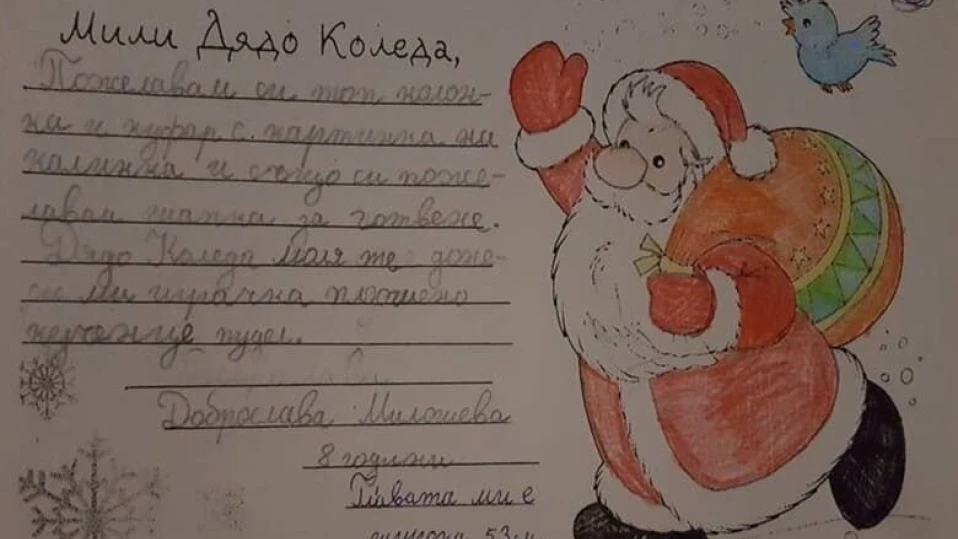 Мили Дядо Коледа,
Пожелавам си топ колон-
ки и куфар с картинка на
калинка и също си поже-
лавам шапка за готвене.
Дядо Коледа моля те доне-
си ми играчка плюшено
кученце пудел.
Доброслава Милошева
8 години
Главата ми е
53